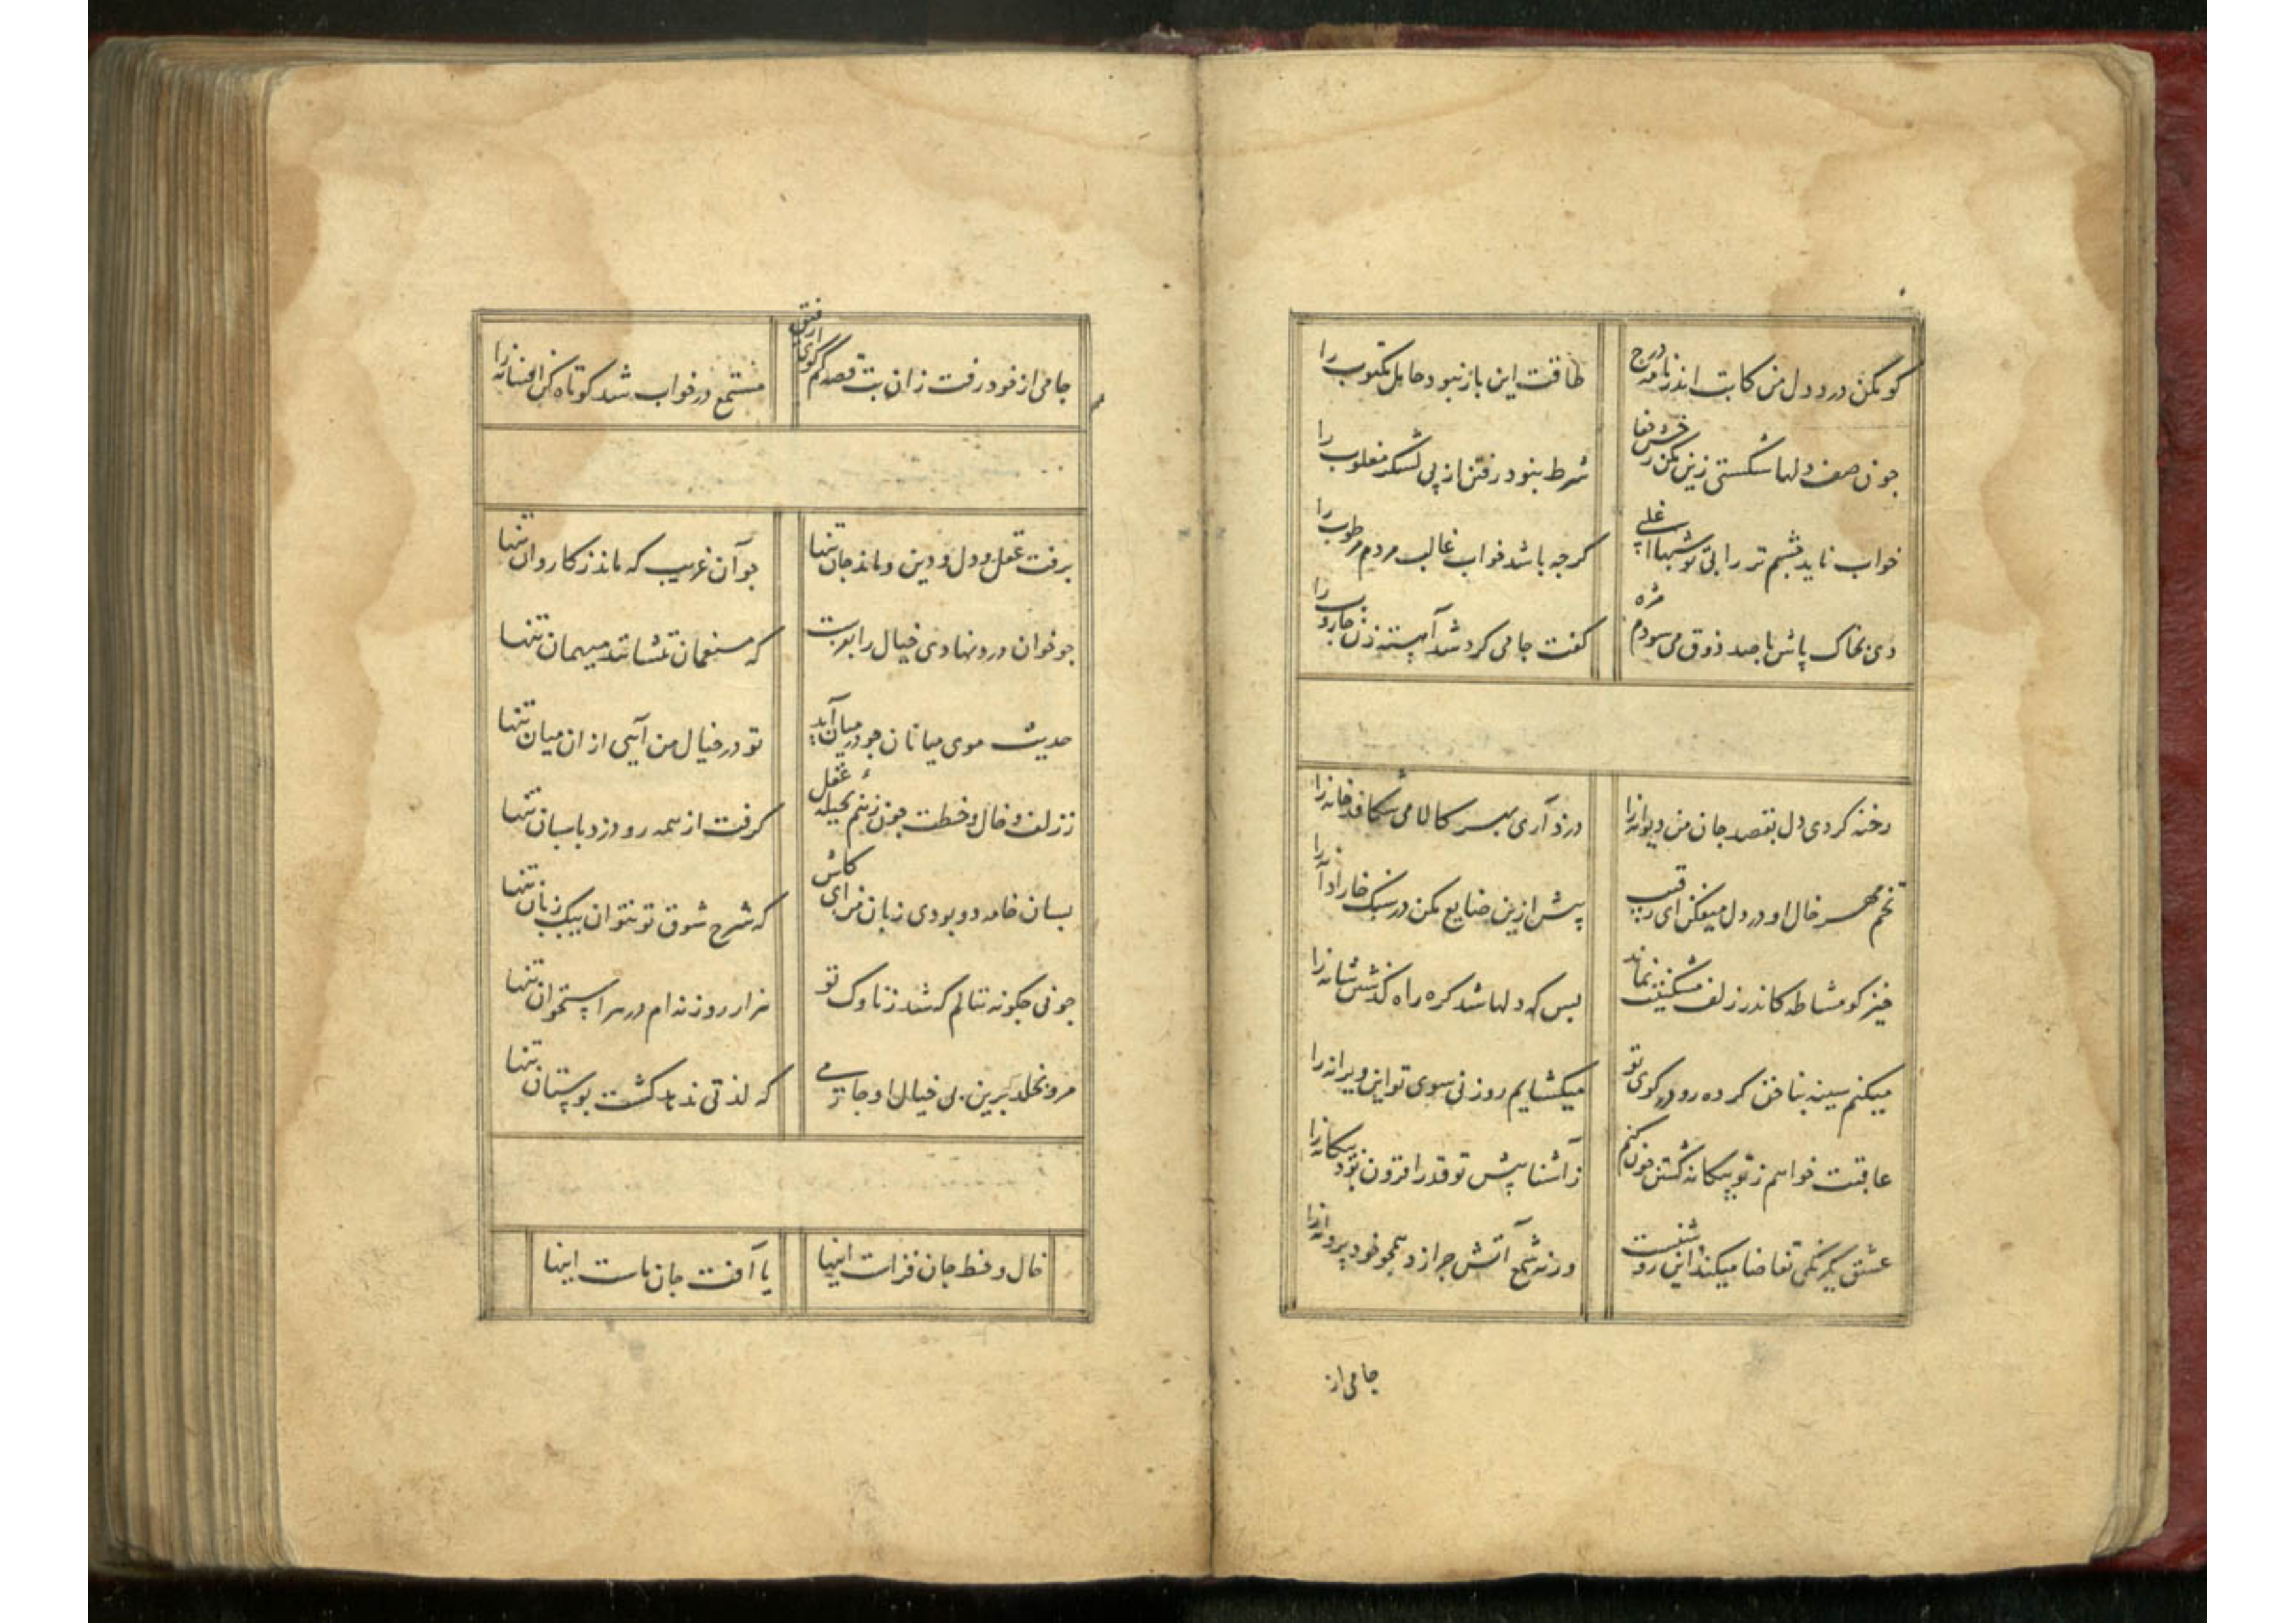 گو مکن درد دل من کاتب اندر نامه درج طاقت این باز نبود حامل مکتوب را
چون صف دلها شکستی زین مکن رخش جفا شرط نبود رفتن از پی لشکر مغلوب را
خواب ناید چشم تر را بی تو شبها ای علی گرچه باشد خواب غالب مردم مرطوب را
دی بخاک پاش با صد ذوق می سودم مژه گفت جامی گرد شد آهسته زن جاروب را
رخنه کردی دل بقصد جان من دیوانه را دزد آری بهر کالا می شکافد خانه را
تخم مهر خال او در دل میفکن ای رقیب پیش ازین ضایع مکن در سنک خارا دانه را
خیز کو مشاطه کاندر زلف مشکینش نماند بس که دلها شد گره راه گذشتن شانه را
میکنم سینه بناخن کرده رو در کوی تو میکشایم روزنی سوی تو این ویرانه را
عاقبت خواهم ز تو بیکانه گشتن چون کنم ز آشنا پیش تو قدر افزون بود بیکانه را
عشق یکرنگی تقاضا میکند این روشنست ورنه شمع آتش چرا زد همچو خود پروانه را
جامی از
جامی از خود رفت زان بت قصه کم گوی ای رفیق مستمع در خواب شد کوتاه کن افسانه را
برفت عقل و دل و دین و ماند جان تنها چو آن غریب که ماند ز کاروان تنها
چو خوان درد نهادی خیال را بفرست که منعمان ننشانند میهمان تنها
حدیث موی میانان چو در میان آید تو در خیال من آیی از ان میان تنها
ز زلف و خال و خطت چون زیم بحیله عقل گرفت از همه رو دزد پاسبان تنها
بسان خامه دو بودی زبان من ای کاش که شرح شوق تو نتوان بیک زبان تنها
چو نی چگونه ننالم که شد ز ناوک تو هزار روزنه ام در هر استخوان تنها
مرو بخلد برین بی خیال او جامی که لذتی ندهد گشت بوستان تنها
خال و خط جان فزاست اینها یا آفت جان ماست اینها